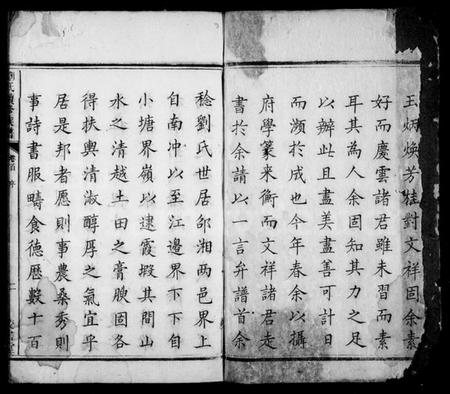 玉炳煥芳誌對文祥固余素
好而慶雲諸君雖未習而素
耳其為人余固知其力之足
以辦此且盡美盡善可計日
而瀕於成也今年春余以攝
府學篆来衡而文祥諸君走
書於余請以一言弁譜首余
稔劉氏世居邵湘兩邑界上
自南冲以至江邊界下下自
小塘界嶺以逮霞塅其間山
水之清越土田之膏腴固各
得扶輿清淑醇厚之氣宜乎
居是邦者愿則事農桑秀則
事詩書服疇食德歷數十百